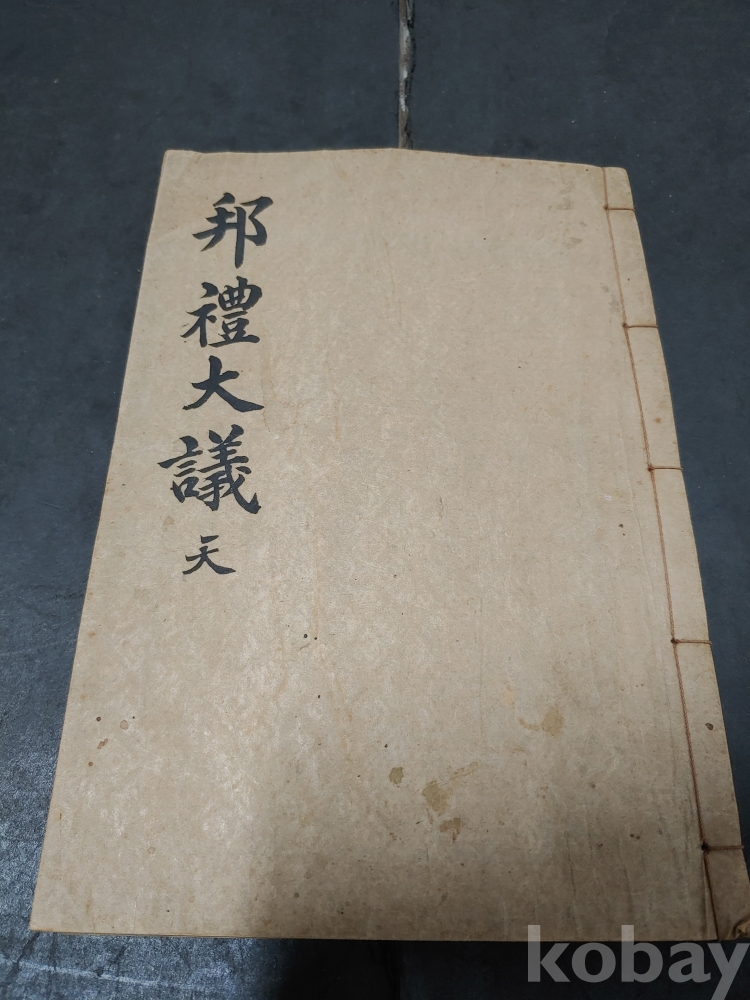 邦禮大議 天
kobay